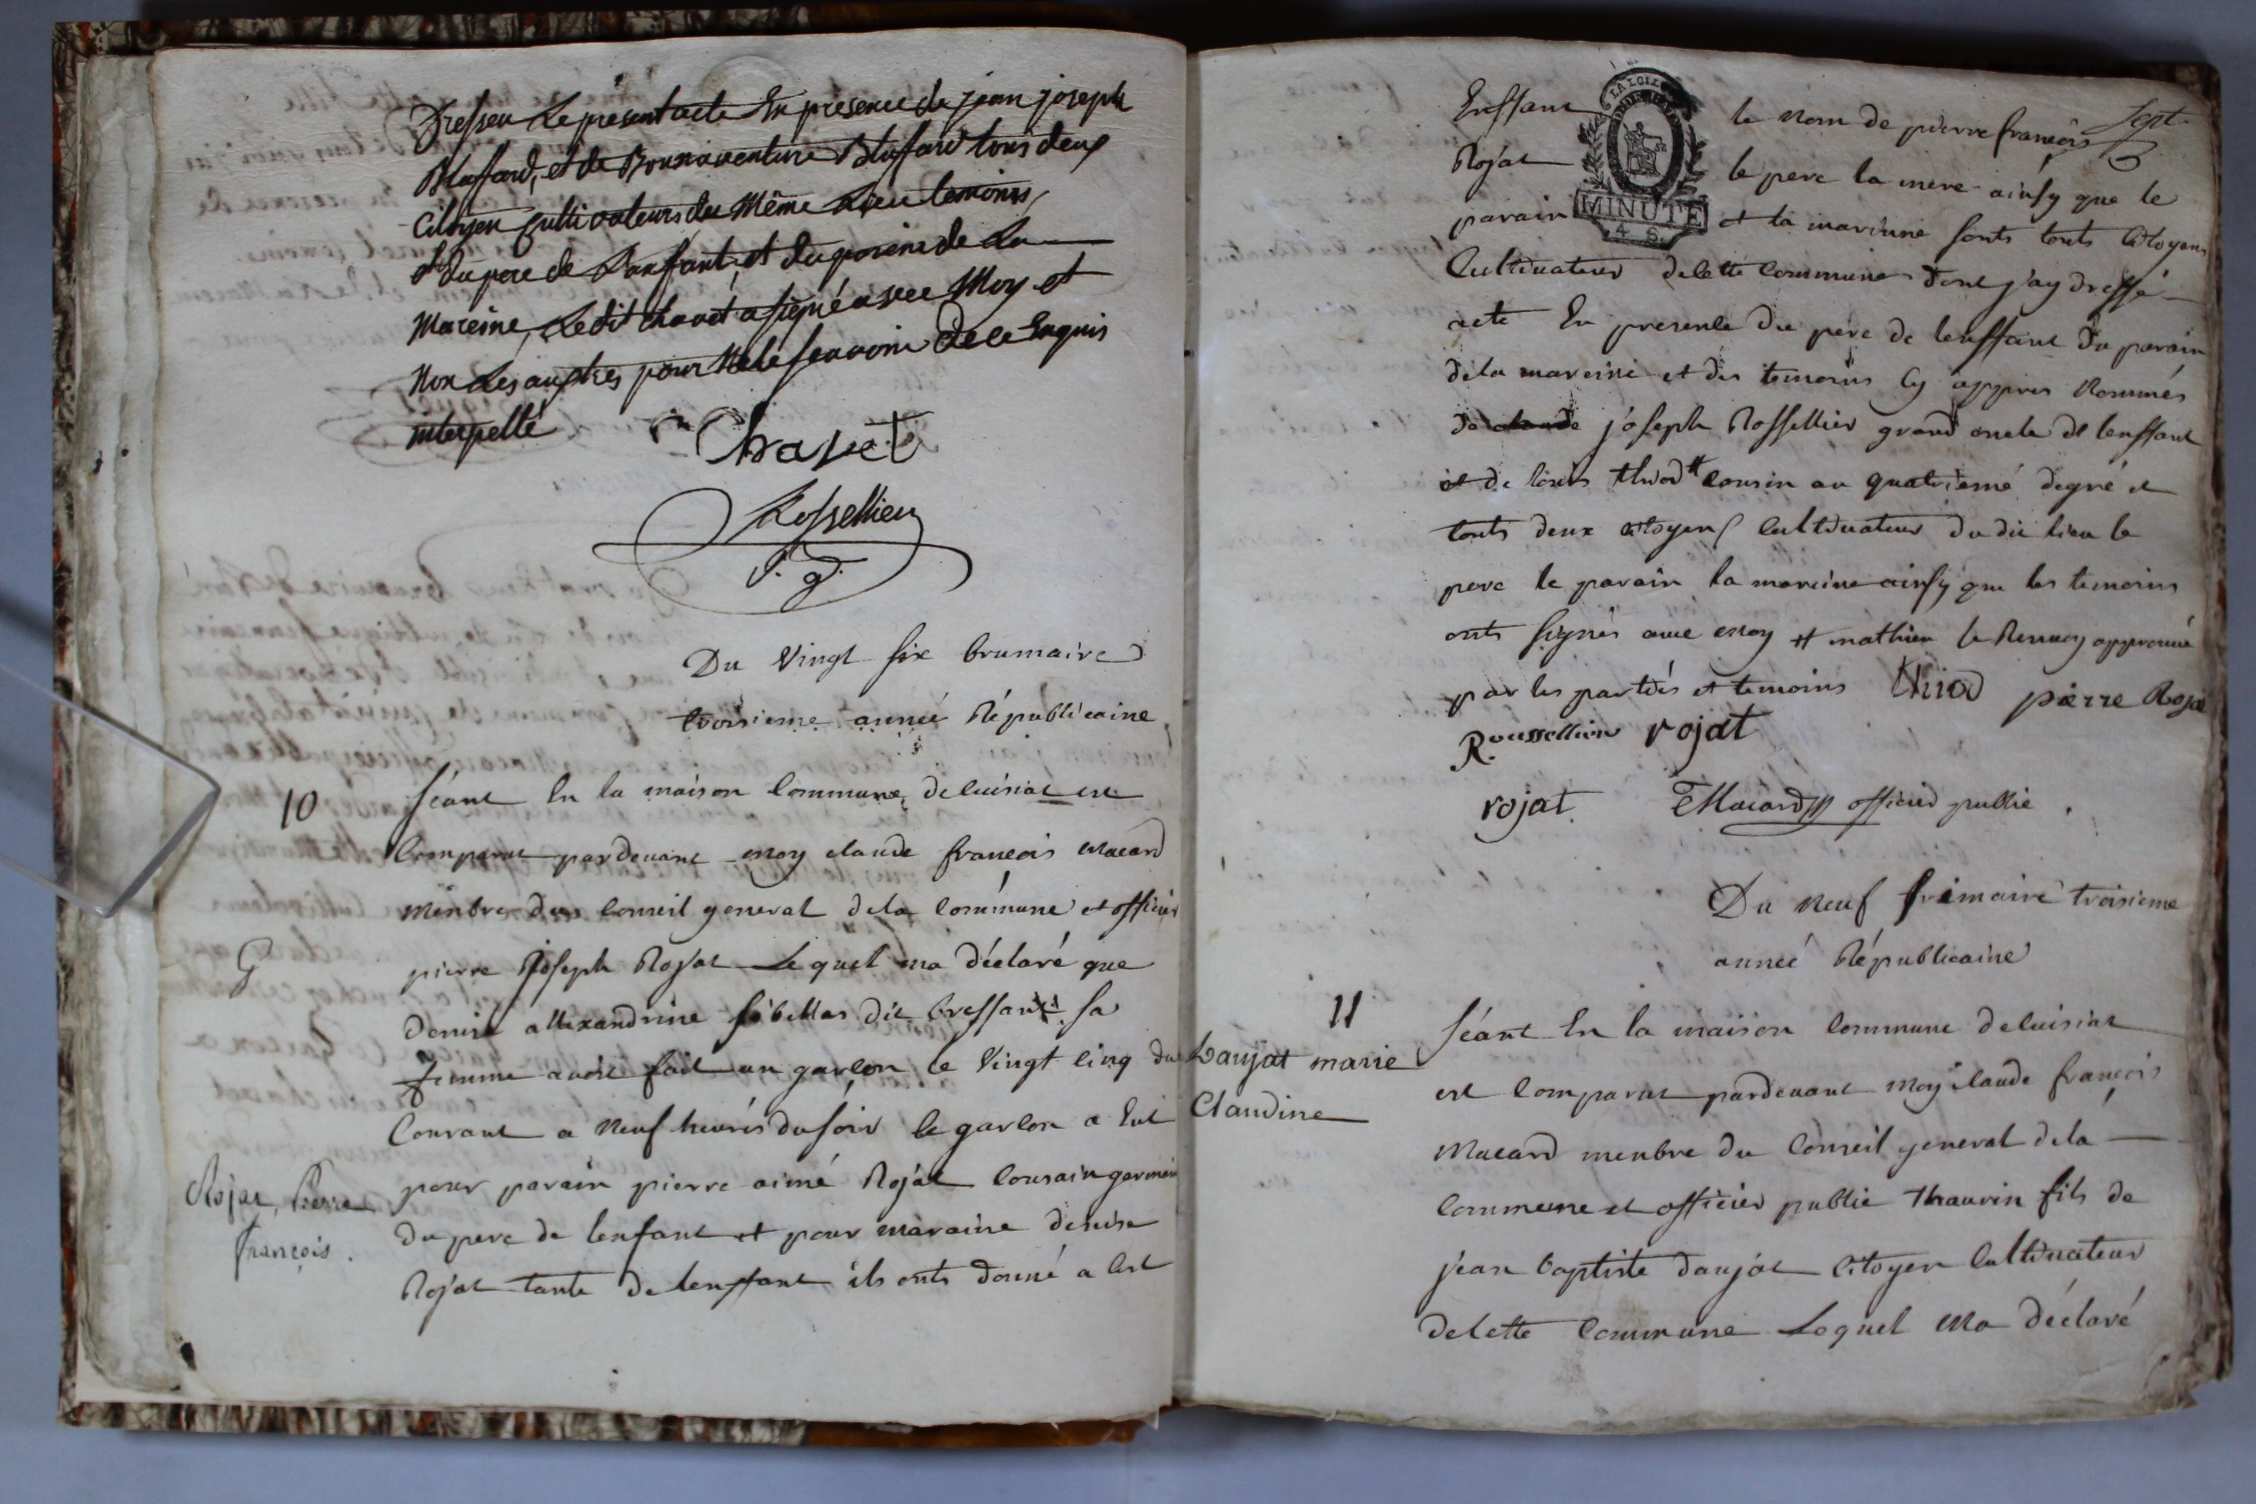 Dressez Le present acte En presence de jean joseph
Blaffard, et de Bonnaventure Blaffard tous deux
Citoyen Cultivateurs du Même Lieu temoins,
et du pere de Lanfant, et du parein de La
Mareine, Ledit Chavet a signé avec Moy et
Non Les auptres pour Ne le scavoire de ce Enquis
interpellé
Chavet
Rossellieu
P. g.
Du Vingt six brumaire
troisieme année Républicaine
10
Séant En la maison Commune de cuisiat est
Comparut pardevant moy claude françois Macard
menbre du Conseil general de la Commune et officier
G
pierre Joseph Rojat Lequel ma déclaré que
denise allexandrine dit bressant sa
femme avoir fait un garçon le Vingt Cinq du
Courant a neuf heures du soir le garcon a Eut
pour parain pierre aimé Rojat Cousain germain
Rojat, Pierre
françois.
du pere de lenfant et pour maraine denise
Rojat tante de lenffant ils onts donné a Cet
Sept
Enffant le nom de pierre françois
LA LOI
Rojat le pere la mere ainsy que le
parain et la marinne sonts touts Citoyens
MINUTE
4 S.
Cultivateur de Cette Commune dont j'ay dressé
acte En presence du pere de lenffant du parain
de la mareine et des temoins Cy appres nommés
de claude joseph Rossellier grand oncle de lenffant
et de louis thiod # Cousin au quatrieme degré et
touts deux citoyen Cultivateur du dit lieu le
pere le parain la mareine ainsy que les temoins
onts signés avec moy # mathieu le Renvoy approuvé
par les parties et temoins Thiod pierre Rojat
Roussellier rojat
rojat Macard officier public
Du neuf frimaire troisieme
année Républicaine
11
Daujat marie
Claudine
Séant En la maison Commune de cuisiat
est Comparut pardevant moy claude françois
Macard menbre du Conseil general de la
Commune et officier public thaurin fils de
jean baptiste daujat Citoyen Cultivateur
de Cette Commune Lequel Ma déclaré